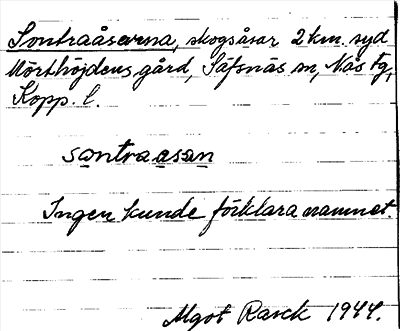 Sontraåserna, skogsåsar 2 km. syd
Mörthöjdens gård, Säfsnäs sn, Nås fg,
Kopp. l.
sontraasan
Ingen kunde förklara namnet.
Mgot Rasck 1944.